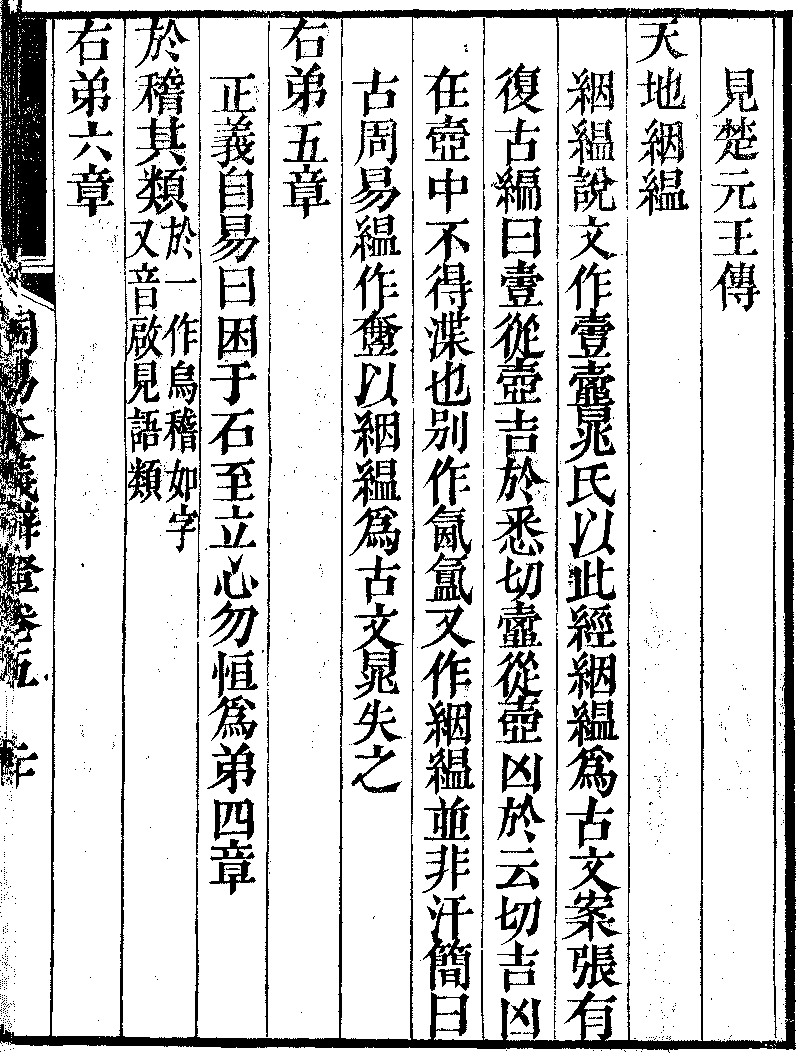 見楚元王傳
天地絪緼
絪緼說文作壹𡔷晁氏以此經絪緼爲古文案張有
復古編曰壹從壺吉於悉切𡔷從壺凶於云切吉凶
在壺中不得渫也别作氤氳又作絪緼並非汗簡曰
古周易緼作𡔷以絪緼爲古文晁失之
右弟五章
正義自易曰困于石至立心勿恒爲弟四章
於稽其類於一作烏稽如字又音啟見語類
右弟六章
周易本義辨證卷五 二十